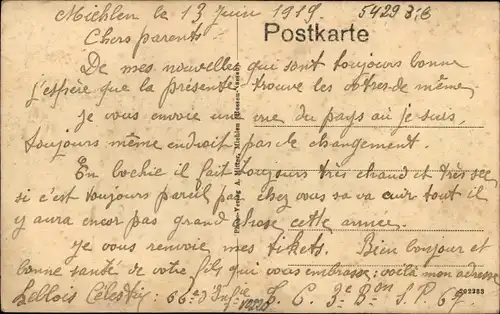 Miehlen le 13 Juin 1919. 5429
Postkarte
Chers parents
De mes nouvelles qui sont toujours bonne
j'espère que la présente trouve les votres de même,
je vous envoie une vue du pays au je suis,
toujours même endroit pas de changement.
En bochie il fait toujours très chaud et très sec
si c'est toujours pareil par chez vous sa va cuir tout il
y aura encor pas grand chose cette année.
je vous renvoie mes tikets. Bien bonjour et
bonne santé de votre fils qui vous embrasse: voilà mon adresse
Leblois Célestin: 66e d'Infie S. C. 3e Bon S. P. 69.
Verlag A. Miehlen
602283